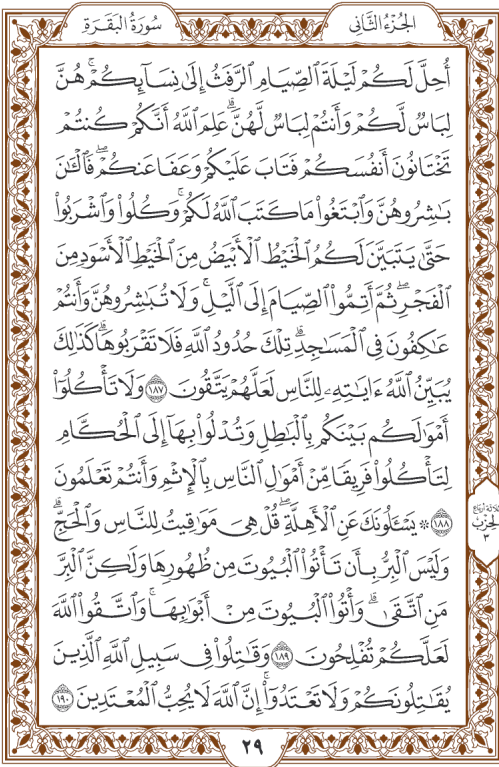 الجُزْءُ الثَّانِي
سُورَةُ البَقَرَةِ
أُحِلَّ لَكُمْ لَيْلَةَ ٱلصِّيَامِ ٱلرَّفَثُ إِلَىٰ نِسَآئِكُمْۚ هُنَّ
لِبَاسٌ لَّكُمْ وَأَنتُمْ لِبَاسٌ لَّهُنَّۗ عَلِمَ ٱللَّهُ أَنَّكُمْ كُنتُمْ
تَخْتَانُونَ أَنفُسَكُمْ فَتَابَ عَلَيْكُمْ وَعَفَا عَنكُمْۖ فَٱلْـَٰٔنَ
بَـٰشِرُوهُنَّ وَٱبْتَغُوا۟ مَا كَتَبَ ٱللَّهُ لَكُمْۚ وَكُلُوا۟ وَٱشْرَبُوا۟
حَتَّىٰ يَتَبَيَّنَ لَكُمُ ٱلْخَيْطُ ٱلْأَبْيَضُ مِنَ ٱلْخَيْطِ ٱلْأَسْوَدِ مِنَ
ٱلْفَجْرِۖ ثُمَّ أَتِمُّوا۟ ٱلصِّيَامَ إِلَى ٱلَّيْلِۚ وَلَا تُبَـٰشِرُوهُنَّ وَأَنتُمْ
عَـٰكِفُونَ فِى ٱلْمَسَـٰجِدِۗ تِلْكَ حُدُودُ ٱللَّهِ فَلَا تَقْرَبُوهَاۗ كَذَٰلِكَ
يُبَيِّنُ ٱللَّهُ ءَايَـٰتِهِۦ لِلنَّاسِ لَعَلَّهُمْ يَتَّقُونَ ١٨٧ وَلَا تَأْكُلُوٓا۟
أَمْوَٰلَكُم بَيْنَكُم بِٱلْبَـٰطِلِ وَتُدْلُوا۟ بِهَآ إِلَى ٱلْحُكَّامِ
لِتَأْكُلُوا۟ فَرِيقًا مِّنْ أَمْوَٰلِ ٱلنَّاسِ بِٱلْإِثْمِ وَأَنتُمْ تَعْلَمُونَ
١٨٨ ۞ يَسْـَٔلُونَكَ عَنِ ٱلْأَهِلَّةِۖ قُلْ هِىَ مَوَٰقِيتُ لِلنَّاسِ وَٱلْحَجِّۗ
وَلَيْسَ ٱلْبِرُّ بِأَن تَأْتُوا۟ ٱلْبُيُوتَ مِن ظُهُورِهَا وَلَـٰكِنَّ ٱلْبِرَّ
مَنِ ٱتَّقَىٰۗ وَأْتُوا۟ ٱلْبُيُوتَ مِنْ أَبْوَٰبِهَاۚ وَٱتَّقُوا۟ ٱللَّهَ
لَعَلَّكُمْ تُفْلِحُونَ ١٨٩ وَقَـٰتِلُوا۟ فِى سَبِيلِ ٱللَّهِ ٱلَّذِينَ
يُقَـٰتِلُونَكُمْ وَلَا تَعْتَدُوٓا۟ۚ إِنَّ ٱللَّهَ لَا يُحِبُّ ٱلْمُعْتَدِينَ ١٩٠
ثلاثة أرباع
الحزب
٣
٢٩